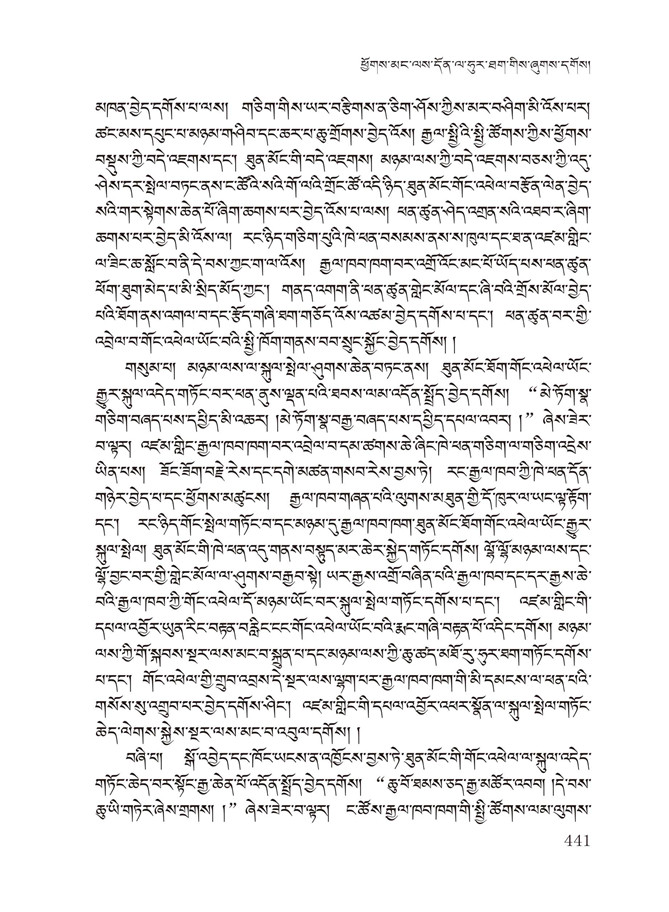 ཕྱོགས་མང་ལས་དོན་ལ་ཧུར་ཐག་གིས་ཞུགས་དགོས།
མཁན་བྱེད་དགོས་པ་ལས། གཅིག་གིས་ཡར་བརྩེགས་ན་ཅིག་ཤོས་ཀྱིས་མར་བཤིག་མི་འོས་པར།
ཚང་མས་དཔུང་པ་མཉམ་གཤིབ་དང་ཆར་པ་ཆུ་གྲོགས་བྱེད་འོས། རྒྱལ་སྤྱིའི་སྤྱི་ཚོགས་ཀྱིས་ཕྱོགས་
བསྡུས་ཀྱི་བདེ་འཇགས་དང་། ཐུན་མོང་གི་བདེ་འཇགས། མཉམ་ལས་ཀྱི་བདེ་འཇགས་བཅས་ཀྱི་འདུ་
ཤེས་དར་སྤེལ་བཏང་ནས་ང་ཚོའི་སའི་གོ་ལའི་གྲོང་ཚོ་འདི་ཉིད་ཐུན་མོང་གོང་འཕེལ་བརྩོན་ལེན་བྱེད་
སའི་གར་སྟེགས་ཆེན་པོ་ཞིག་ཆགས་པར་བྱེད་འོས་པ་ལས། ཕན་ཚུན་ཤེད་འགྲན་སའི་འཐབ་ར་ཞིག་
ཆགས་པར་བྱེད་མི་འོས་ལ། རང་ཉིད་གཅིག་པུའི་ཁེ་ཕན་བསམས་ནས་ས་ཁུལ་དང་ཐ་ན་འཛམ་གླིང་
ལ་ཟིང་ཆ་སློང་བ་ནི་དེ་བས་ཀྱང་ག་ལ་འོས། རྒྱལ་ཁབ་ཁག་བར་འགྲོ་འོང་མང་པོ་ཡོད་པས་ཕན་ཚུན་
ཕོག་ཐུག་མེད་པ་མི་སྲིད་མོད་ཀྱང་། གནད་འགག་ནི་ཕན་ཚུན་གླེང་མོལ་དང་ཞི་བའི་གྲོས་མོལ་བྱེད་
པའི་ཐོག་ནས་འགལ་བ་དང་རྩོད་གཞི་ཐག་གཅོད་འོས་འཚམ་བྱེད་དགོས་པ་དང་། ཕན་ཚུན་བར་གྱི་
འབྲེལ་བ་གོང་འཕེལ་ཡོང་བའི་སྤྱི་ཁོག་གནས་བབ་སྲུང་སྐྱོང་བྱེད་དགོས། །
གསུམ་པ། མཉམ་ལས་ལ་སྐུལ་སྤེལ་ཤུགས་ཆེན་བཏང་ནས། ཐུན་མོང་ཐོག་གོང་འཕེལ་ཡོང་
རྒྱུར་སྐུལ་འདེད་གཏོང་བར་ཕན་ནུས་ལྡན་པའི་ཐབས་ལམ་འདོན་སྤྲོད་བྱེད་དགོས། “མེ་ཏོག་སྣ་
གཅིག་བཞད་པས་དཔྱིད་མི་འཆར། །མེ་ཏོག་སྣ་བརྒྱ་བཞད་པས་དཔྱིད་དཔལ་འབར། །” ཞེས་ཟེར་
བ་ལྟར། འཛམ་གླིང་རྒྱལ་ཁབ་ཁག་བར་འབྲེལ་བ་དམ་ཚགས་ཆེ་ཞིང་ཁེ་ཕན་གཅིག་ལ་གཅིག་འདྲེས་
ཡིན་པས། ཟོང་ཟོག་བརྗེ་རེས་དང་དགེ་མཚན་གསབ་རེས་བྱས་ཏེ། རང་རྒྱལ་ཁབ་ཀྱི་ཁེ་ཕན་དོན་
གཉེར་བྱེད་པ་དང་ཕྱོགས་མཚུངས། རྒྱལ་ཁབ་གཞན་པའི་ལུགས་མཐུན་གྱི་དོ་ཁུར་ལ་ཡང་ལྟ་རྟོག་
དང་། རང་ཉིད་གོང་སྤེལ་གཏོང་བ་དང་མཉམ་དུ་རྒྱལ་ཁབ་ཁག་ཐུན་མོང་ཐོག་གོང་འཕེལ་ཡོང་རྒྱུར་
སྐུལ་སྤེལ། ཐུན་མོང་གི་ཁེ་ཕན་འདུ་གནས་བསྟུད་མར་ཆེར་སྐྱེད་གཏོང་དགོས། ལྷོ་ལྷོ་མཉམ་ལས་དང་
ལྷོ་བྱང་བར་གྱི་གླེང་མོལ་ལ་ཤུགས་བརྒྱབ་སྟེ། ཡར་རྒྱས་འགྲོ་བཞིན་པའི་རྒྱལ་ཁབ་དང་དར་རྒྱས་ཆེ་
བའི་རྒྱལ་ཁབ་ཀྱི་གོང་འཕེལ་དོ་མཉམ་ཡོང་བར་སྐུལ་སྤེལ་གཏོང་དགོས་པ་དང་། འཛམ་གླིང་གི་
དཔལ་འབྱོར་ཡུན་རིང་བརྟན་བརླིང་ངང་གོང་འཕེལ་ཡོང་བའི་རྨང་གཞི་བརྟན་པོ་འདིང་དགོས། མཉམ་
ལས་ཀྱི་གོ་སྐབས་སྔར་ལས་མང་བ་སྐྲུན་པ་དང་མཉམ་ལས་ཀྱི་ཆུ་ཚད་མཐོ་རུ་ཧུར་ཐག་གཏོང་དགོས་
པ་དང་། གོང་འཕེལ་གྱི་གྲུབ་འབྲས་དེ་སྔར་ལས་ལྷག་པར་རྒྱལ་ཁབ་ཁག་གི་མི་དམངས་ལ་ཕན་པའི་
གསོས་སུ་འགྱུབ་པར་བྱེད་དགོས་ཤིང་། འཛམ་གླིང་གི་དཔལ་འབྱོར་འཕར་སྣོན་ལ་སྐུལ་སྤེལ་གཏོང་
ཆེད་ལེགས་སྐྱེས་སྔར་ལས་མང་བ་འབུལ་དགོས། །
བཞི་པ། སྒོ་འབྱེད་དང་ཁོང་ཡངས་ན་འཁྱོངས་བྱས་ཏེ་ཐུན་མོང་གི་གོང་འཕེལ་ལ་སྐུལ་འདེད་
གཏོང་ཆེད་བར་སྟོང་རྒྱ་ཆེན་པོ་འདོན་སྤྲོད་བྱེད་དགོས། “ཆུ་བོ་ཐམས་ཅད་རྒྱ་མཚོར་འབབ། །དེ་བས་
ཆུ་ཡི་གཏེར་ཞེས་གྲགས། །” ཞེས་ཟེར་བ་ལྟར། ང་ཚོས་རྒྱལ་ཁབ་ཁག་གི་སྤྱི་ཚོགས་ལམ་ལུགས་
441